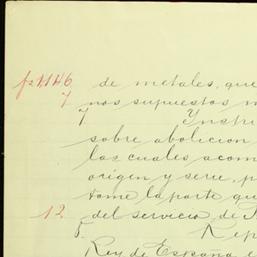 p 1146 de metales, que
7 nos supuestos m
7 Instr
sobre abolicion
las cuales acom
origen y serie, p
tome la parte qu
12 del servicio de N
5 Rep
Rey de España e